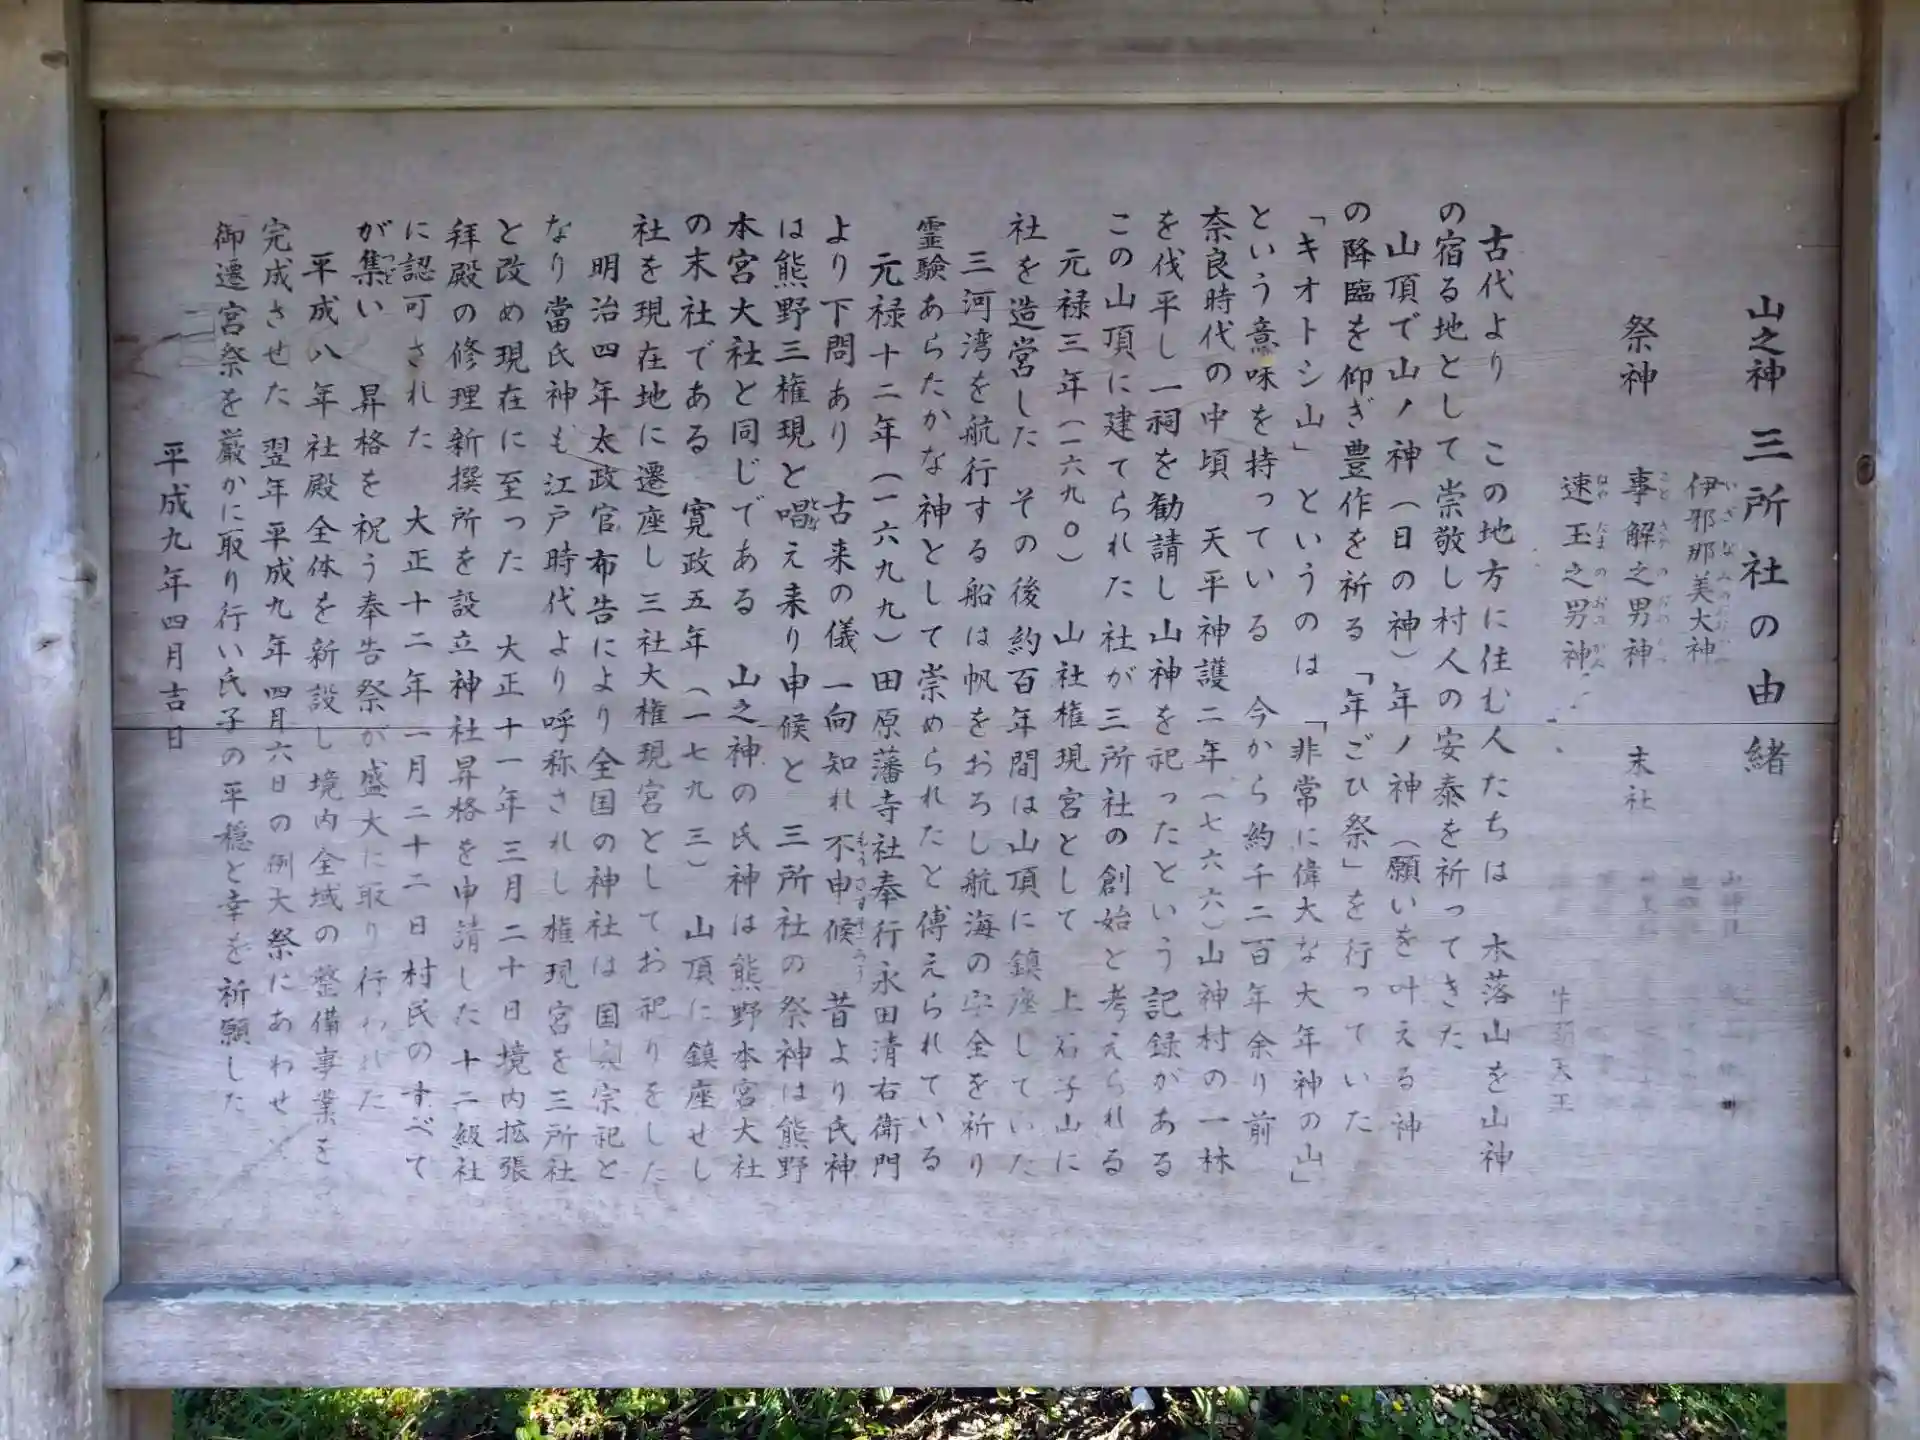 山之神 三所社の由緒
祭神
伊邪那美大神
事解之男神
速玉之男神
末社
牛頭天王
古代より この地方に住む人たちは 木落山を山神
の宿る地として崇敬し村人の安泰を祈ってきた
山頂で山ノ神(日の神)年ノ神(願いを叶える神
の降臨を仰ぎ豊作を祈る「年ごひ祭」を行っていた
「キオトシ山」というのは「非常に偉大な大年神の山」
という意味を持っている 今から約千二百年余り前
奈良時代の中頃 天平神護二年(七六六)山神村の一林
を伐平し一祠を勧請し山神を祀ったという記録がある
この山頂に建てられた社が三所社の創始と考えられる
元禄三年(一六九〇) 山社権現宮として 上石子山に
社を造営した その後約百年間は山頂に鎮座していた
三河湾を航行する船は帆をおろし航海の安全を祈り
霊験あらたかな神として崇められたと傳えられている
元禄十二年(一六九九)田原藩寺社奉行永田清右衛門
より下問あり 古来の儀一向知れ不申候 昔より氏神
は熊野三権現と唱え来り申候と 三所社の祭神は熊野
本宮大社と同じである 山之神の氏神は熊野本宮大社
の末社である 寛政五年(一七九三) 山頂に鎮座せし
社を現在地に遷座し三社大権現宮としてお祀りをした
明治四年太政官布告により全国の神社は国家宗祀と
なり當氏神も江戸時代より呼称されし権現宮を三所社
と改め現在に至った 大正十一年三月二十日境内拡張
拝殿の修理新撰所を設立神社昇格を申請した 十二級社
に認可された 大正十二年一月二十二日村民のすべて
が集い 昇格を祝う奉告祭が盛大に取り行われた
平成八年社殿全体を新設し境内全域の整備事業を
完成させた 翌年平成九年四月六日の例大祭にあわせ
御遷宮祭を厳かに取り行い氏子の平穏と幸を祈願した
平成九年四月吉日